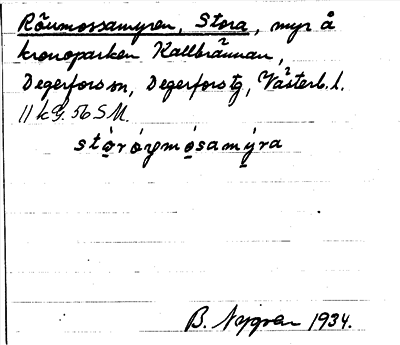 Rôumossamyren, Stora, myr å
kronoparken Kallbrännan,
Degerfors sn, Degerfors tg, Västerb. l.
11 k G. 56 S.M.
B. Nygren 1934.